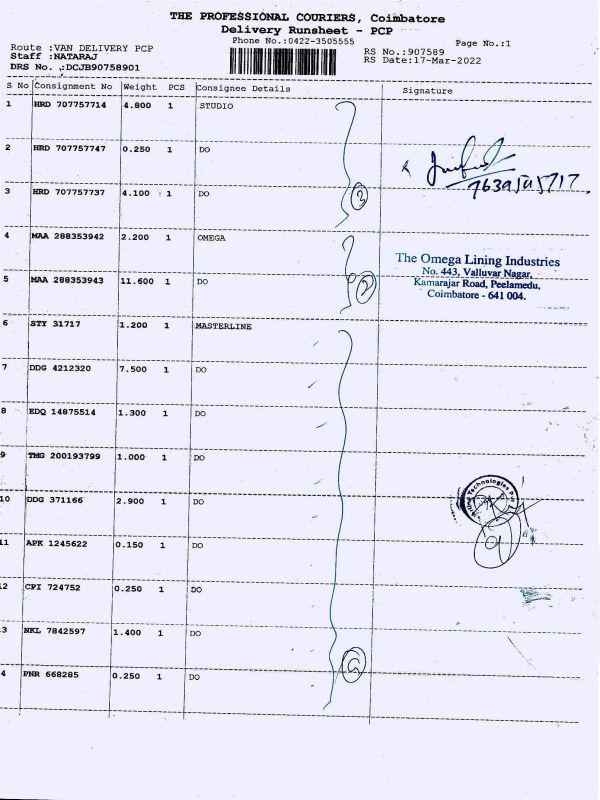 THE PROFESSIONAL COURIERS, Coimbatore
Delivery Runsheet - PCP
Phone No.:0422-3505555
Page No.:1
Route :VAN DELIVERY PCP
RS No.:907589
Staff :NATARAJ
RS Date:17-Mar-2022
DRS No. .:DCJB90758901
S No Consignment No Weight PCS Consignee Details Signature
1 HRD 707757714 4.800 1 STUDIO
2 HRD 707757747 0.250 1 DO
3 HRD 707757737 4.100 1 DO
3
4 MAA 288353942 2.200 1 OMEGA
The Omega Lining Industries
No. 443, Valluvar Nagar,
Kamarajar Road, Peelamedu,
Coimbatore - 641 004.
5 MAA 288353943 11.600 1 DO
2
6 STY 31717 1.200 1 MASTERLINE
7 DDG 4212320 7.500 1 DO
8 EDQ 14875514 1.300 1 DO
9 TMG 200193799 1.000 1 DO
10 DDG 371166 2.900 1 DO
Technologies
11 APK 1245622 0.150 1 DO
12 CPI 724752 0.250 1 DO
3 NKL 7842597 1.400 1 DO
4 PNR 668285 0.250 1 DO